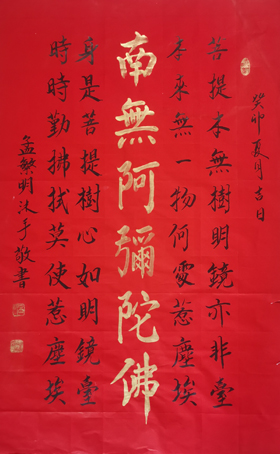 癸卯夏月吉日
菩提本無樹明鏡亦非臺
本来無一物何處惹塵埃
南無阿彌陀佛
身是菩提樹心如明鏡臺
時時勤拂拭莫使惹塵埃
孟繁明沐手敬書